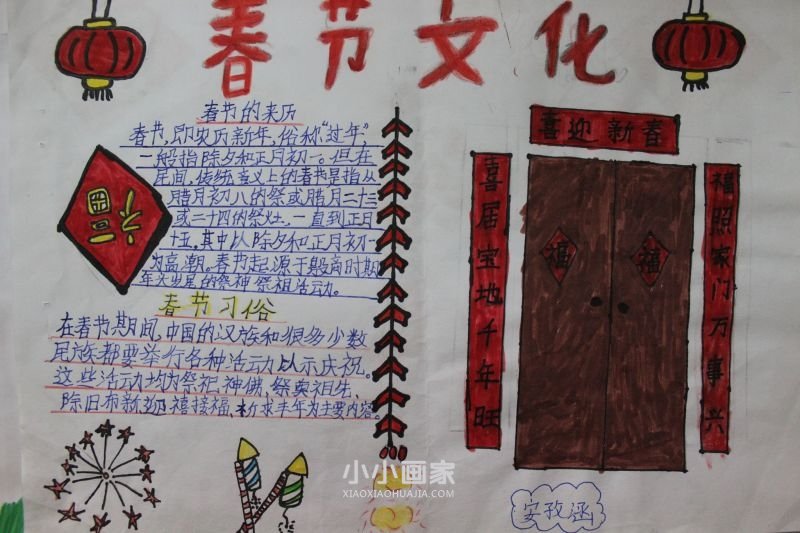 春节文化
春节的来历
春节，即农历新年，俗称“过年”，
一般指除夕和正月初一。但在
民间，传统意义上的春节是指从
腊月初八的祭或腊月二十三
或二十四的祭灶，一直到正月
十五，其中以除夕和正月初一
为高潮。春节起源于殷商时期
年头岁尾的祭神祭祖活动。
春节习俗
在春节期间，中国的汉族和很多少数
民族都要举行各种活动以示庆祝。
这些活动均为祭祀神佛，祭奠祖先、
除旧布新迎禧接福、祈求丰年为主要内容
福
喜迎新春
喜居宝地千年旺
福照家门万事兴
福
福
安孜涵
小小画家
XIAOXIAOHUAJIA.COM